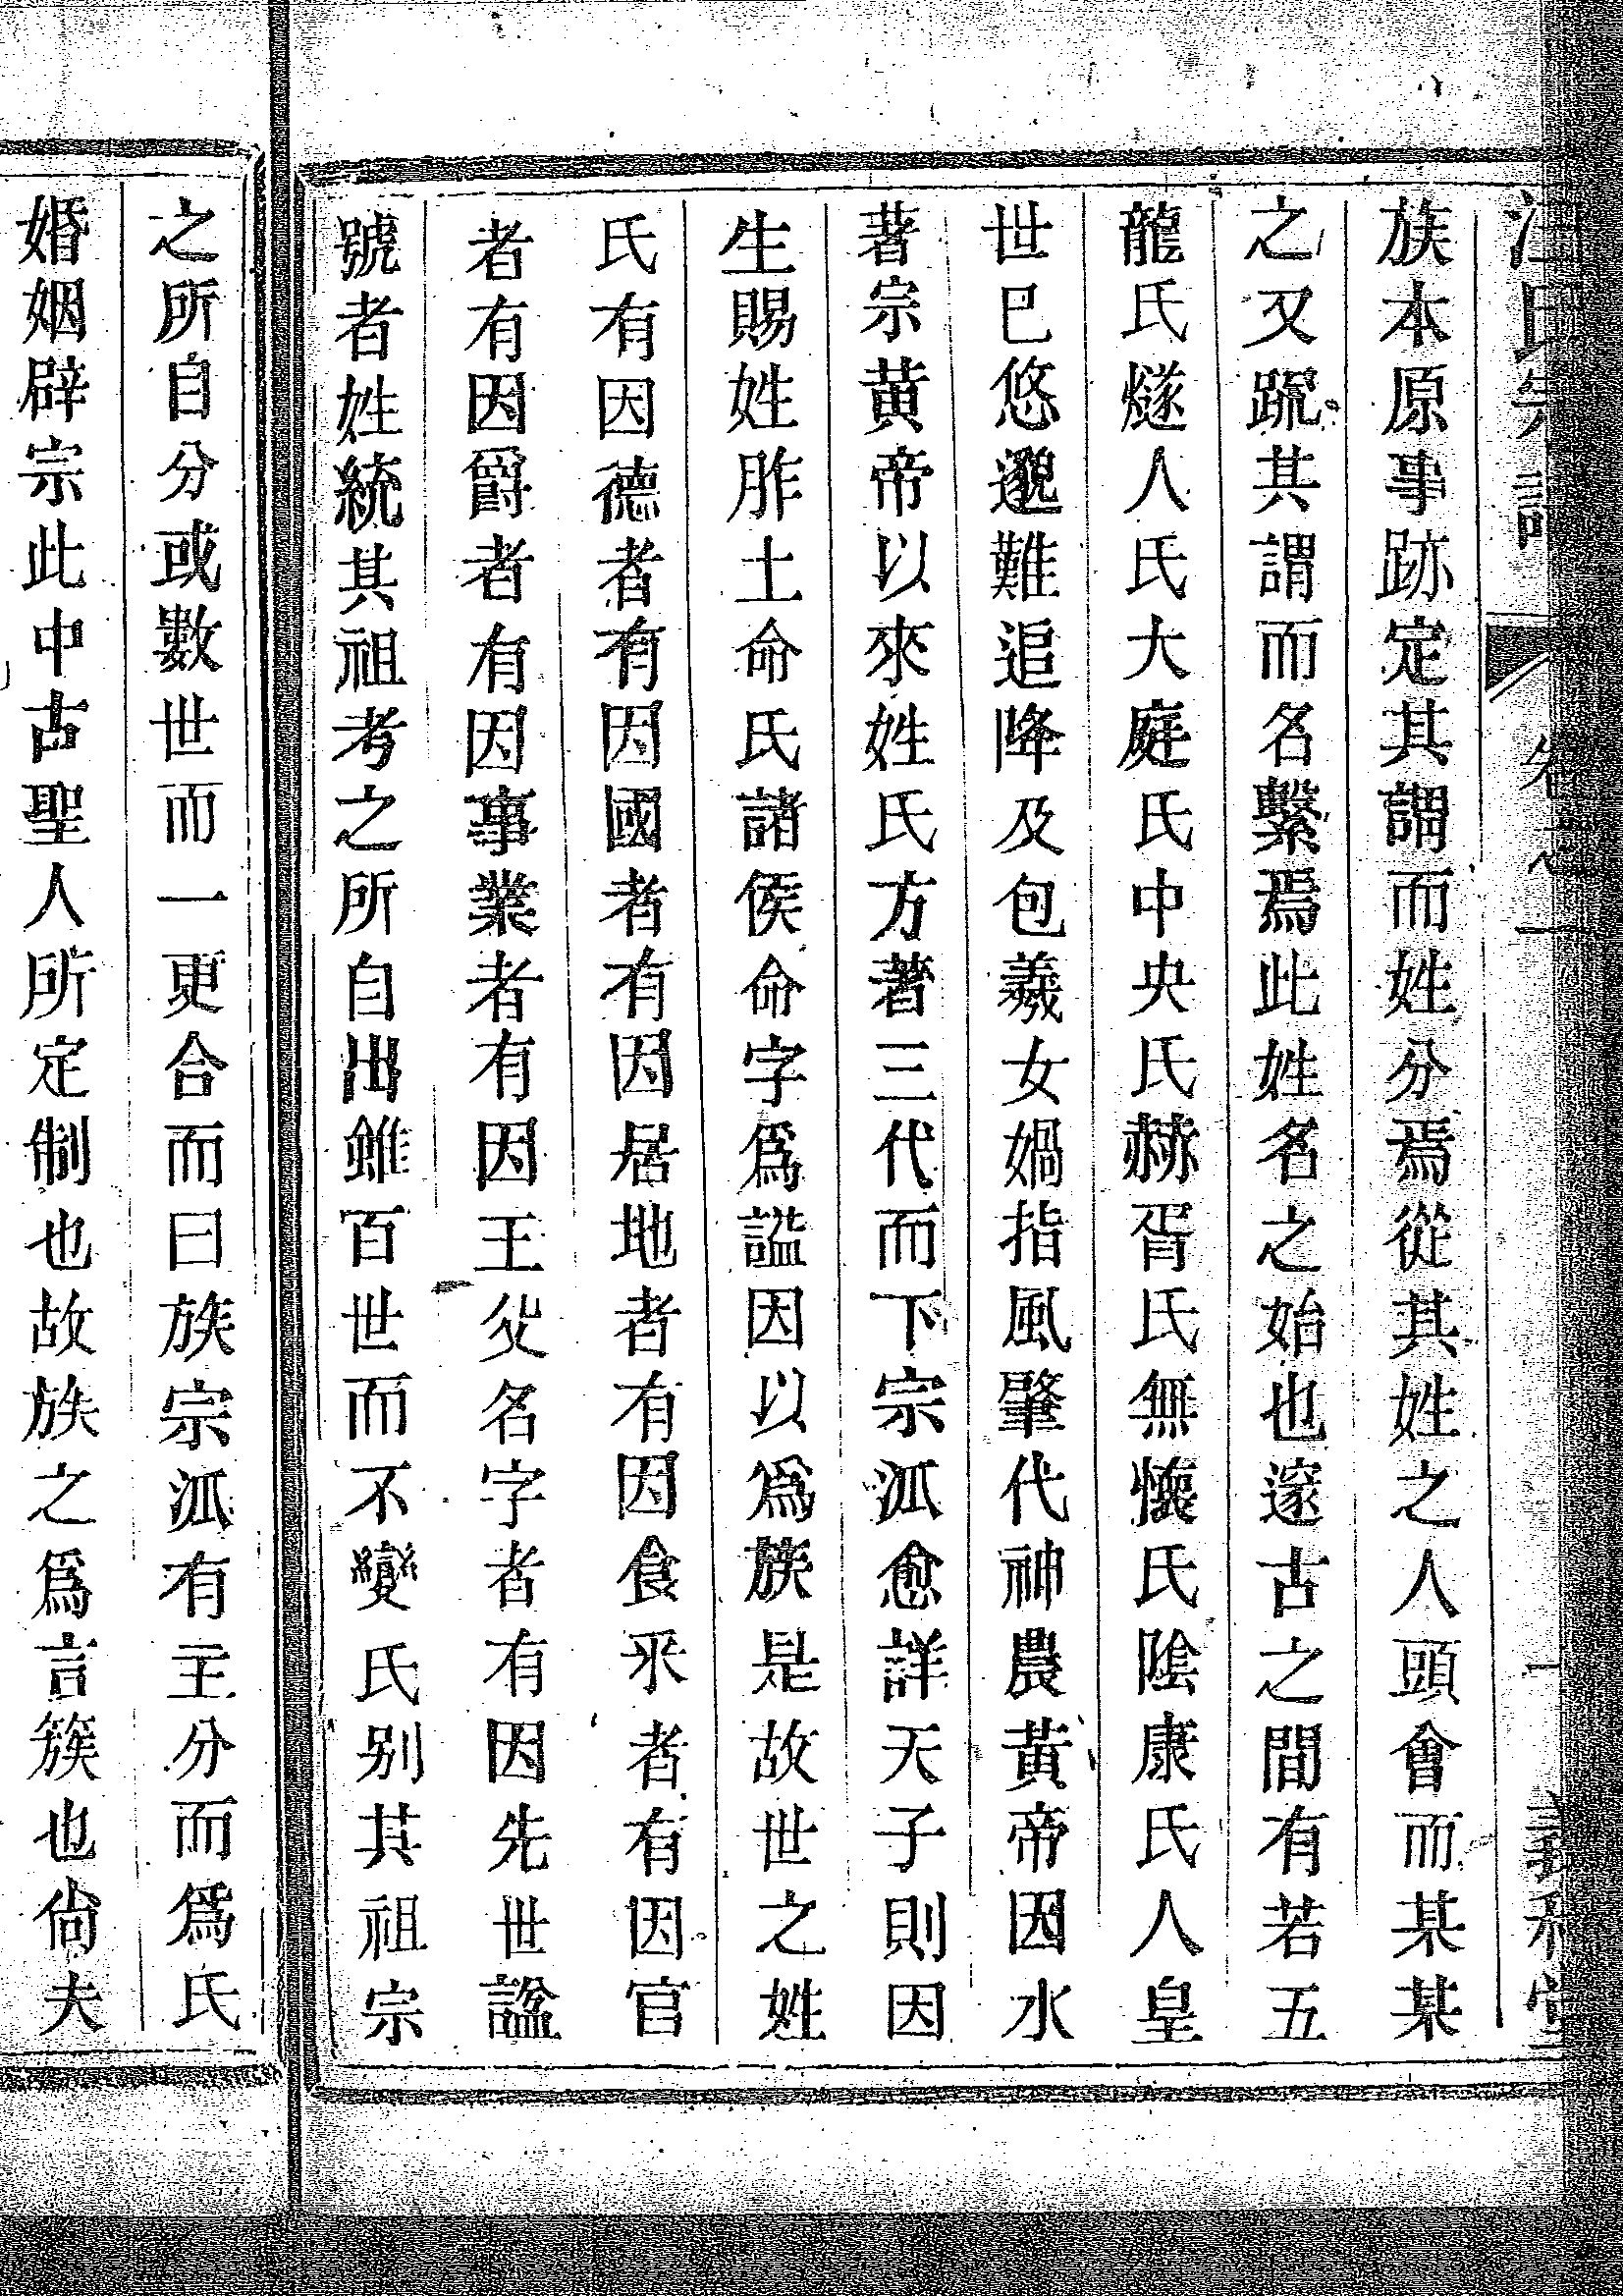 族本原事跡定其謂而姓分焉從其姓之人頭會而某某
之又䟽其謂而名繫焉此姓名之始也邃古之間有若五
龍氏燧人氏大庭氏中央氏赫胥氏無懷氏陰康氏人皇
世巳悠邈難追降及包羲女媧指風肇代神農黃帝因水
著宗黄帝以來姓氏方著三代而下宗派愈詳天子則因
生賜姓胙土命氏諸侯命字爲謚因以爲族是故世之姓
氏有因德者有因國者有因居地者有因食采者有因官
者有因爵者有因事業者有因王父名字者有因先世諡
號者姓統其祖考之所自出雖百世而不變氏别其祖宗
之所自分或數世而一更合而曰族宗派有主分而爲氏
婚姻辟宗此中古聖人所定制也故族之爲言簇也尙夫